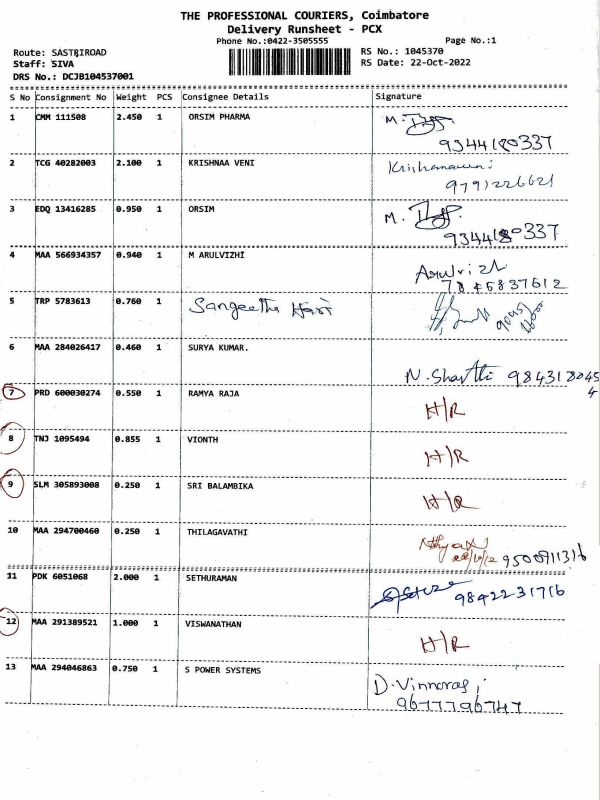 THE PROFESSIONAL COURIERS, Coimbatore
Delivery Runsheet - PCX
Phone No.:0422-3505555 Page No.:1
Route: SASTRIROAD RS No.: 1045370
Staff: SIVA RS Date: 22-Oct-2022
DRS No.: DCJB104537001
S No Consignment No Weight PCS Consignee Details Signature
1 CMM 111508 2.450 1 ORSIM PHARMA M.
9344180337
2 TCG 40282003 2.100 1 KRISHNAA VENI Krishanaveni
9791226621
3 EDQ 13416285 0.950 1 ORSIM M.
9344180337
4 MAA 566934357 0.940 1 M ARULVIZHI Arulvizhi
7845837612
5 TRP 5783613 0.760 1 Sangeetha Hari
6 MAA 284026417 0.460 1 SURYA KUMAR.
N. Shanthi 9843180454
7 PRD 600030274 0.550 1 RAMYA RAJA H/R
8 TNJ 1095494 0.855 1 VIONTH H/R
9 SLM 305893008 0.250 1 SRI BALAMBIKA H/R
10 MAA 294700460 0.250 1 THILAGAVATHI
9500911316
11 PDK 6051068 2.000 1 SETHURAMAN
9842231716
12 MAA 291389521 1.000 1 VISWANATHAN H/R
13 MAA 294046863 0.750 1 S POWER SYSTEMS D. Vinnoras
9677796747